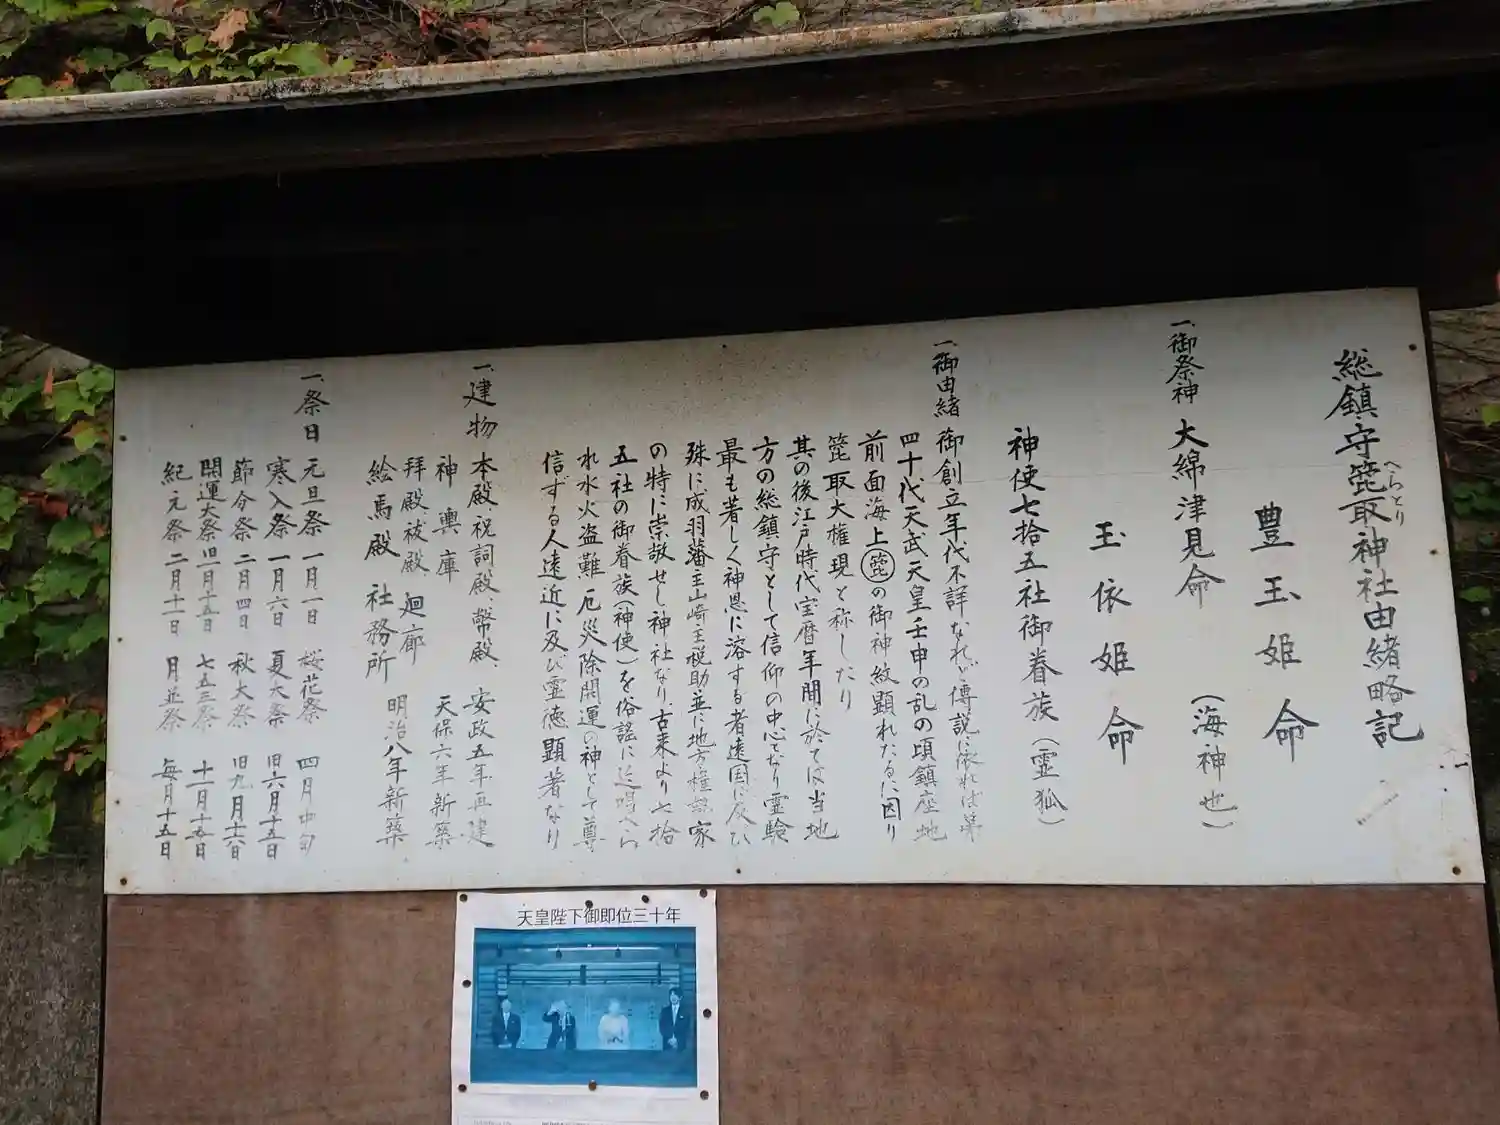 総鎮守箆取神社由緒略記
へらとり
一、御祭神 大綿津見命 (海神也)
豊玉姫命
玉依姫命
神使七拾五社御眷族(霊狐)
一、御由緒 御創立年代不詳なれど傳説に依れば第
四十代天武天皇壬申の乱の頃鎮座地
前面海上箆の御神紋顕れたるに因り
箆取大権現と称したり
其の後江戸時代宝暦年間に於ては当地
方の総鎮守として信仰の中心となり霊験
最も著しく神恩に溶する者遠国に及び
殊に成羽藩主山崎主税助並に地方権諸家
の特に崇敬せし神社なり古来より七拾
五社の御眷族(神使)を俗謡に迄唱へら
れ水火盗難 厄災除開運の神として尊
信ずる人遠近に及び霊徳顕著なり
一、建物 本殿、祝詞殿、幣殿、 安政五年再建
神輿庫 天保六年新築
拝殿祓殿、廻廊 明治八年新築
絵馬殿 社務所
一、祭日 元旦祭 一月一日 桜花祭 四月中旬
寒入祭 一月六日 夏大祭 旧六月十五日
節分祭 二月四日 秋大祭 旧九月十六日
開運大祭 旧一月十五日 七五三祭 十一月十五日
紀元祭 二月十一日 月並祭 毎月十五日
天皇陛下御即位三十年